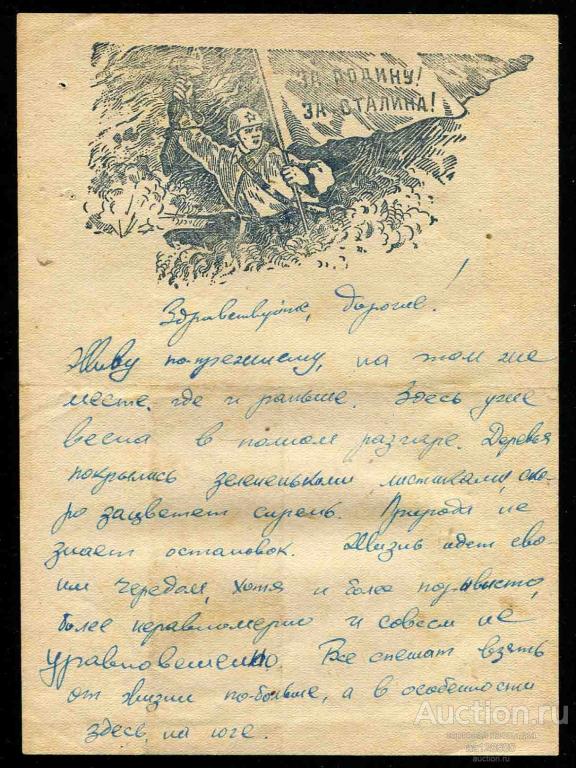 ЗА РОДИНУ!
ЗА СТАЛИНА!
Здравствуйте, дорогие!
Живу по-прежнему, на том же
месте, где и раньше. Здесь уже
весна в полном разгаре. Деревья
покрылись зелененькими листиками, ско-
ро зацветет сирень. Природа не
знает остановок. Жизнь идет сво-
им чередом, хотя и более порывисто,
более неравномерно и совсем не
уравновешенно. Все спешат взять
от жизни по-больше, а в особенности
здесь, на юге.
Auction.ru
auction.ru